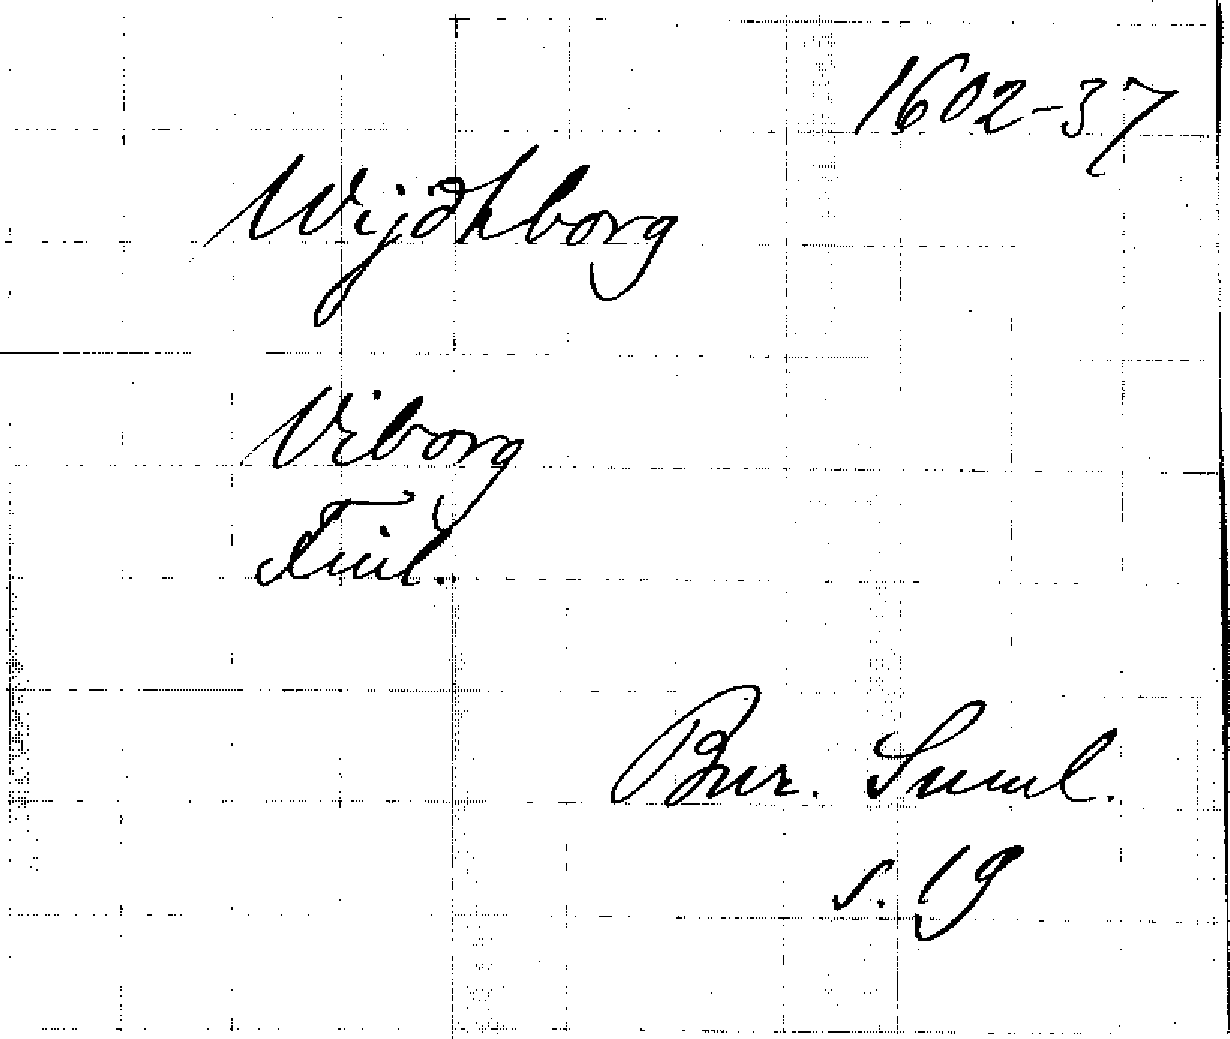 1602-37
Wijdhborg
Viborg
Finl.
Bur. Suml.
s. 19